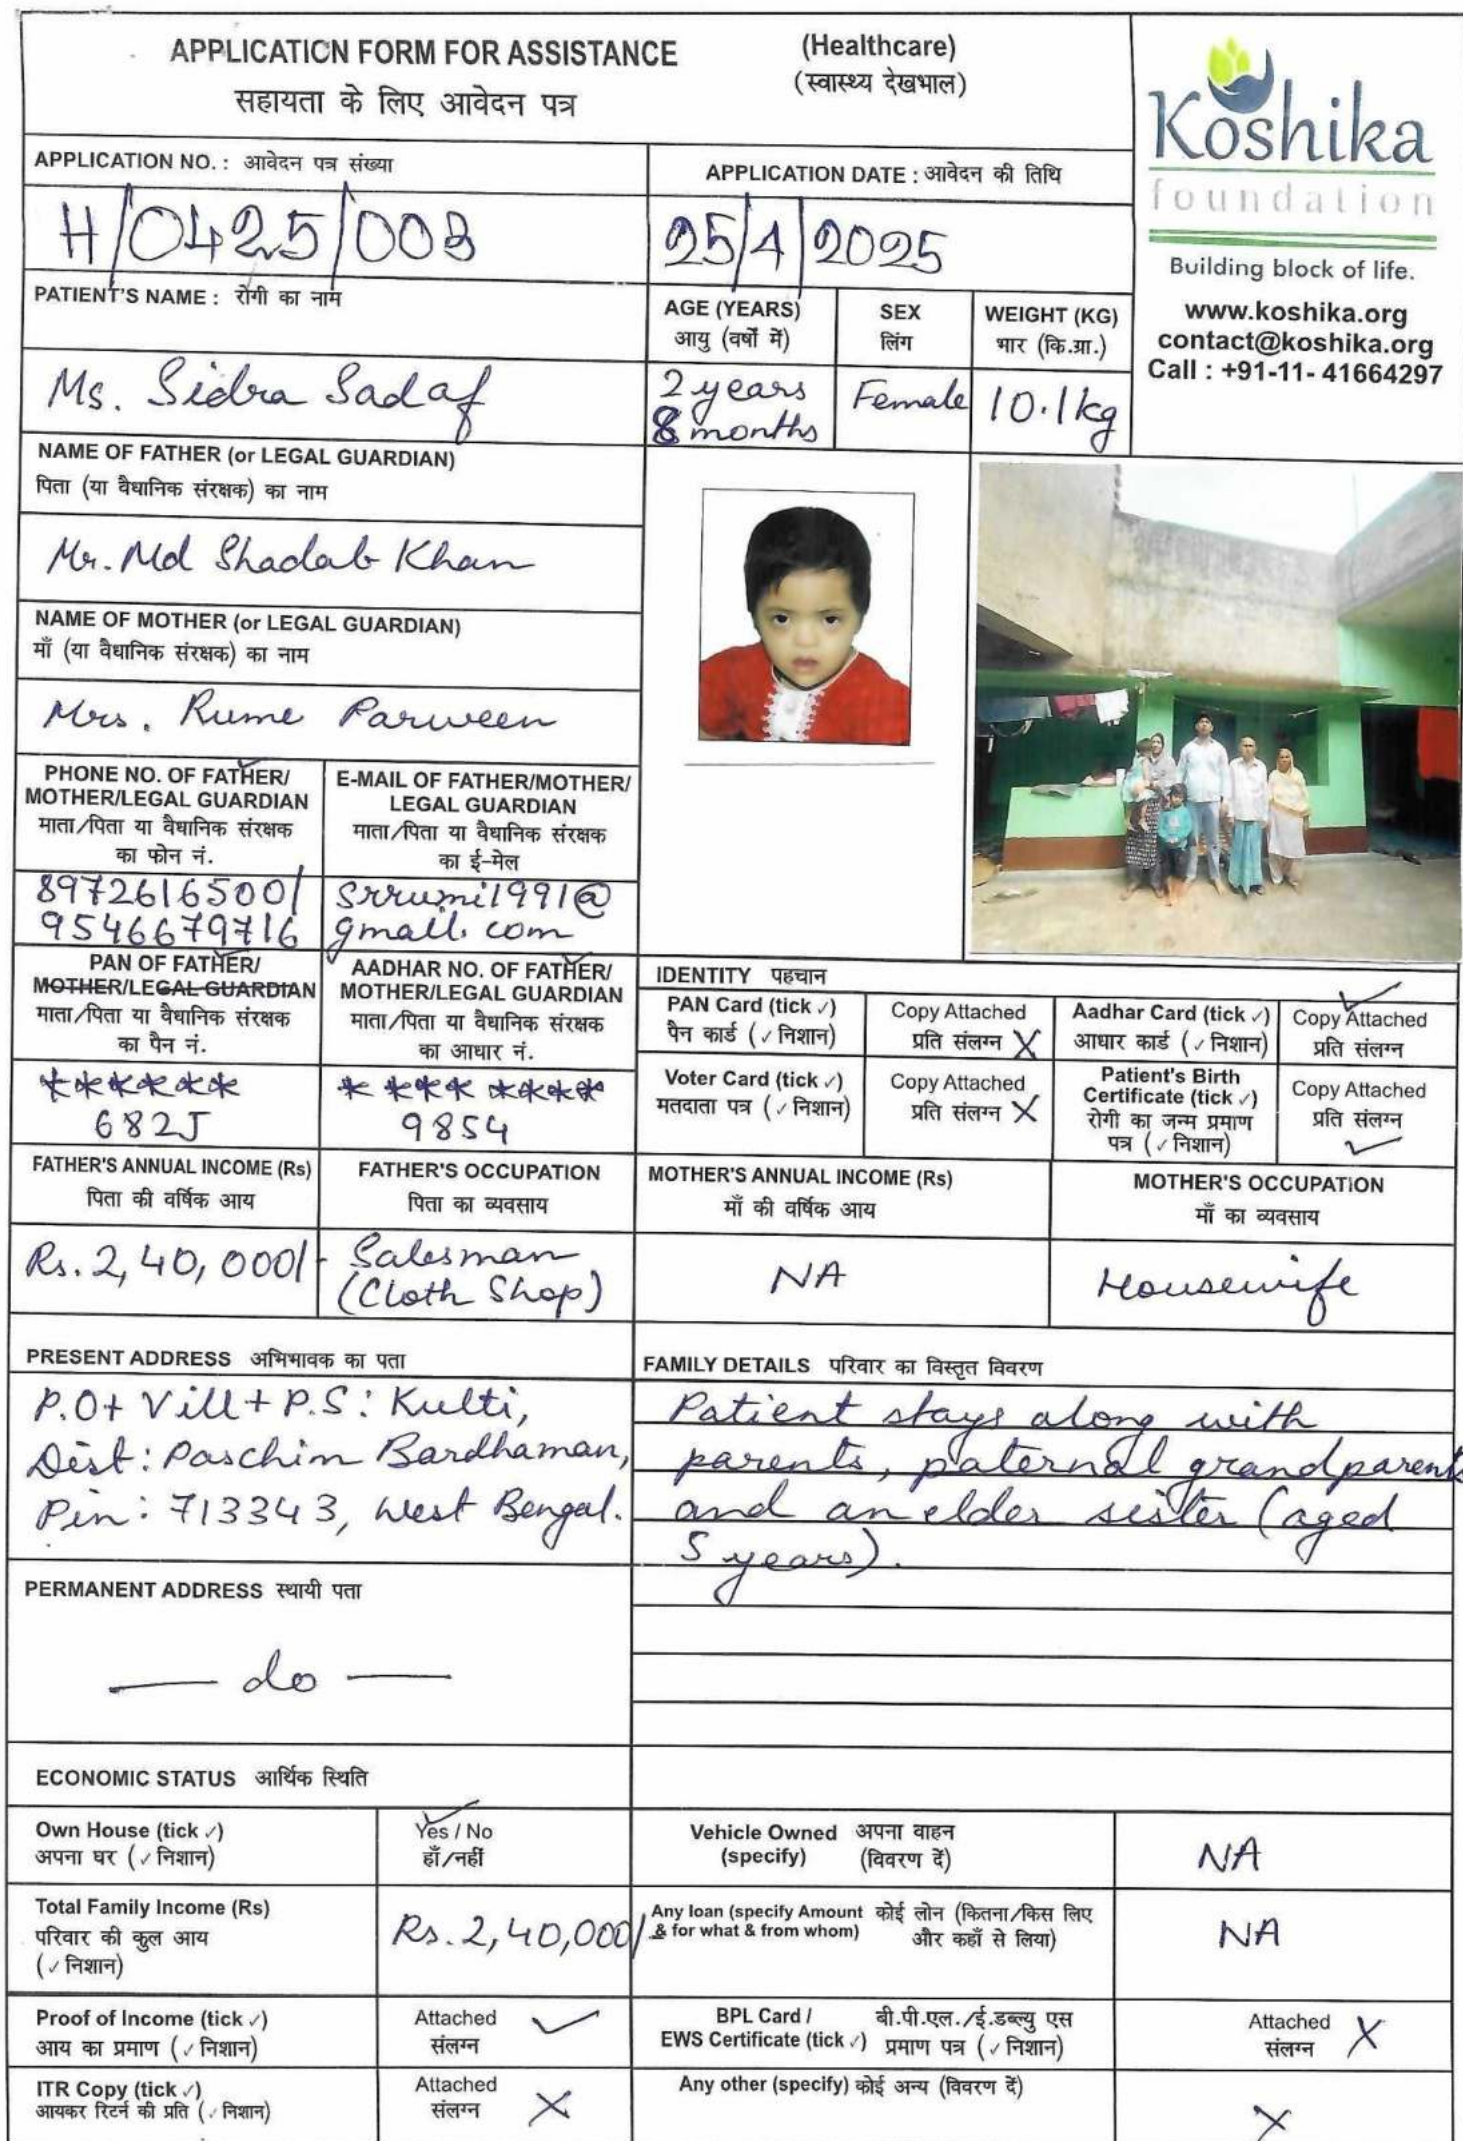 APPLICATION FORM FOR ASSISTANCE
(Healthcare)
सहायता के लिए आवेदन पत्र
(स्वास्थ्य देखभाल)
Koshika
foundation
Building block of life.
www.koshika.org
contact@koshika.org
Call : +91-11- 41664297
APPLICATION NO. : आवेदन पत्र संख्या
APPLICATION DATE : आवेदन की तिथि
H/0425/003
25/4/2025
PATIENT'S NAME : रोगी का नाम
AGE (YEARS)
आयु (वर्षों में)
SEX
लिंग
WEIGHT (KG)
भार (कि.ग्रा.)
Ms. Sidra Sadaf
2 years
8 months
Female
10.1kg
NAME OF FATHER (or LEGAL GUARDIAN)
पिता (या वैधानिक संरक्षक) का नाम
Mr. Md Shadab Khan
NAME OF MOTHER (or LEGAL GUARDIAN)
माँ (या वैधानिक संरक्षक) का नाम
Mrs. Rume Parween
PHONE NO. OF FATHER/
MOTHER/LEGAL GUARDIAN
माता/पिता या वैधानिक संरक्षक
का फोन नं.
E-MAIL OF FATHER/MOTHER/
LEGAL GUARDIAN
माता/पिता या वैधानिक संरक्षक
का ई-मेल
8972616500/
9546679716
srrumi1991@
gmail.com
PAN OF FATHER/
MOTHER/LEGAL GUARDIAN
माता/पिता या वैधानिक संरक्षक
का पैन नं.
AADHAR NO. OF FATHER/
MOTHER/LEGAL GUARDIAN
माता/पिता या वैधानिक संरक्षक
का आधार नं.
******
682J
**** ****
9854
IDENTITY पहचान
PAN Card (tick ✓)
पैन कार्ड (✓ निशान)
Copy Attached
प्रति संलग्न X
Aadhar Card (tick ✓)
आधार कार्ड (✓ निशान)
✓
Copy Attached
प्रति संलग्न
Voter Card (tick ✓)
मतदाता पत्र (✓ निशान)
Copy Attached
प्रति संलग्न X
Patient's Birth
Certificate (tick ✓)
रोगी का जन्म प्रमाण
पत्र (✓ निशान)
Copy Attached
प्रति संलग्न
✓
FATHER'S ANNUAL INCOME (Rs)
पिता की वर्षिक आय
FATHER'S OCCUPATION
पिता का व्यवसाय
MOTHER'S ANNUAL INCOME (Rs)
माँ की वर्षिक आय
MOTHER'S OCCUPATION
माँ का व्यवसाय
Rs. 2,40,000/-
Salesman
(Cloth Shop)
NA
Housewife
PRESENT ADDRESS अभिभावक का पता
P.O+ Vill + P.S: Kulti,
Dist: Paschim Bardhaman,
Pin: 713343, West Bengal.
FAMILY DETAILS परिवार का विस्तृत विवरण
Patient stays along with
parents, paternal grandparents
and an elder sister (aged
5 years).
PERMANENT ADDRESS स्थायी पता
— do —
ECONOMIC STATUS आर्थिक स्थिति
Own House (tick ✓)
अपना घर (✓ निशान)
✓
Yes / No
हाँ/नहीं
Vehicle Owned अपना वाहन
(specify) (विवरण दें)
NA
Total Family Income (Rs)
परिवार की कुल आय
(✓ निशान)
Rs. 2,40,000/
Any loan (specify Amount कोई लोन (कितना/किस लिए
& for what & from whom) और कहाँ से लिया)
NA
Proof of Income (tick ✓)
आय का प्रमाण (✓ निशान)
Attached ✓
संलग्न
BPL Card / बी.पी.एल./ई.डब्ल्यु एस
EWS Certificate (tick ✓) प्रमाण पत्र (✓ निशान)
Attached X
संलग्न
ITR Copy (tick ✓)
आयकर रिटर्न की प्रति (✓ निशान)
Attached
संलग्न X
Any other (specify) कोई अन्य (विवरण दें)
X